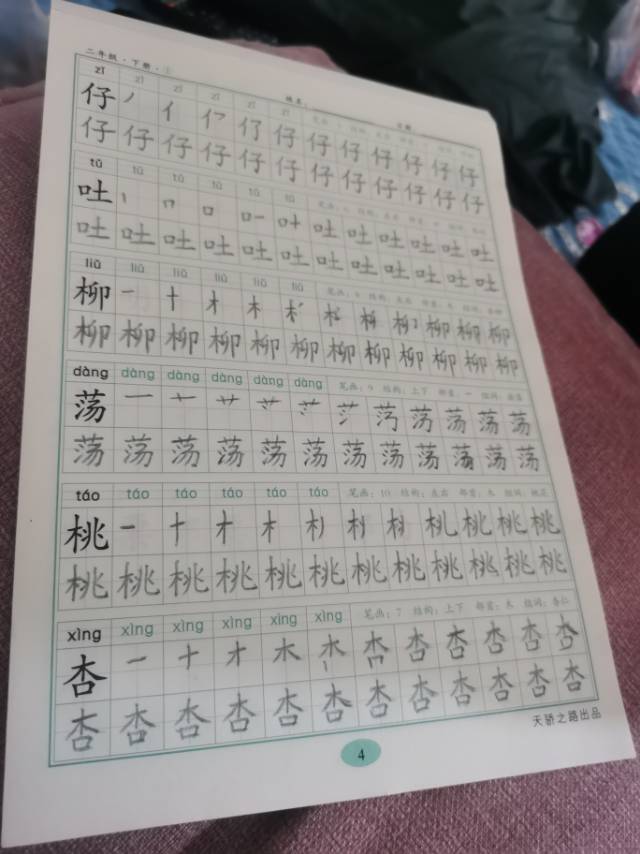 二年级·下册·
zǐ zǐ zǐ zǐ zǐ zǐ
仔 仔 仔 仔 仔 仔 仔
仔 仔 仔 仔 仔 仔 仔 仔 仔 仔 仔 仔
tǔ tǔ tǔ tǔ tǔ tǔ
吐 吐 吐 吐 吐 吐 吐
吐 吐 吐 吐 吐 吐 吐 吐 吐 吐 吐 吐
liǔ liǔ liǔ liǔ liǔ liǔ
柳 柳 柳 柳
柳 柳 柳 柳 柳 柳 柳 柳 柳 柳 柳 柳
dàng dàng dàng dàng dàng dàng 笔画：9 结构：上下 部首：艹
荡 荡 荡 荡 荡
荡 荡 荡 荡 荡 荡 荡 荡 荡 荡 荡 荡
táo táo táo táo táo táo 笔画：10 结构：左右 部首：木 组词：桃花
桃 桃 桃 桃
桃 桃 桃 桃 桃 桃 桃 桃 桃 桃 桃 桃
xìng xìng xìng xìng xìng xìng 笔画：7 结构：上下 部首：木 组词：杏仁
杏 一 十 才 木 杏 杏 杏 杏 杏
杏 杏 杏 杏 杏 杏 杏 杏 杏 杏 杏 杏
天骄之路出品
4